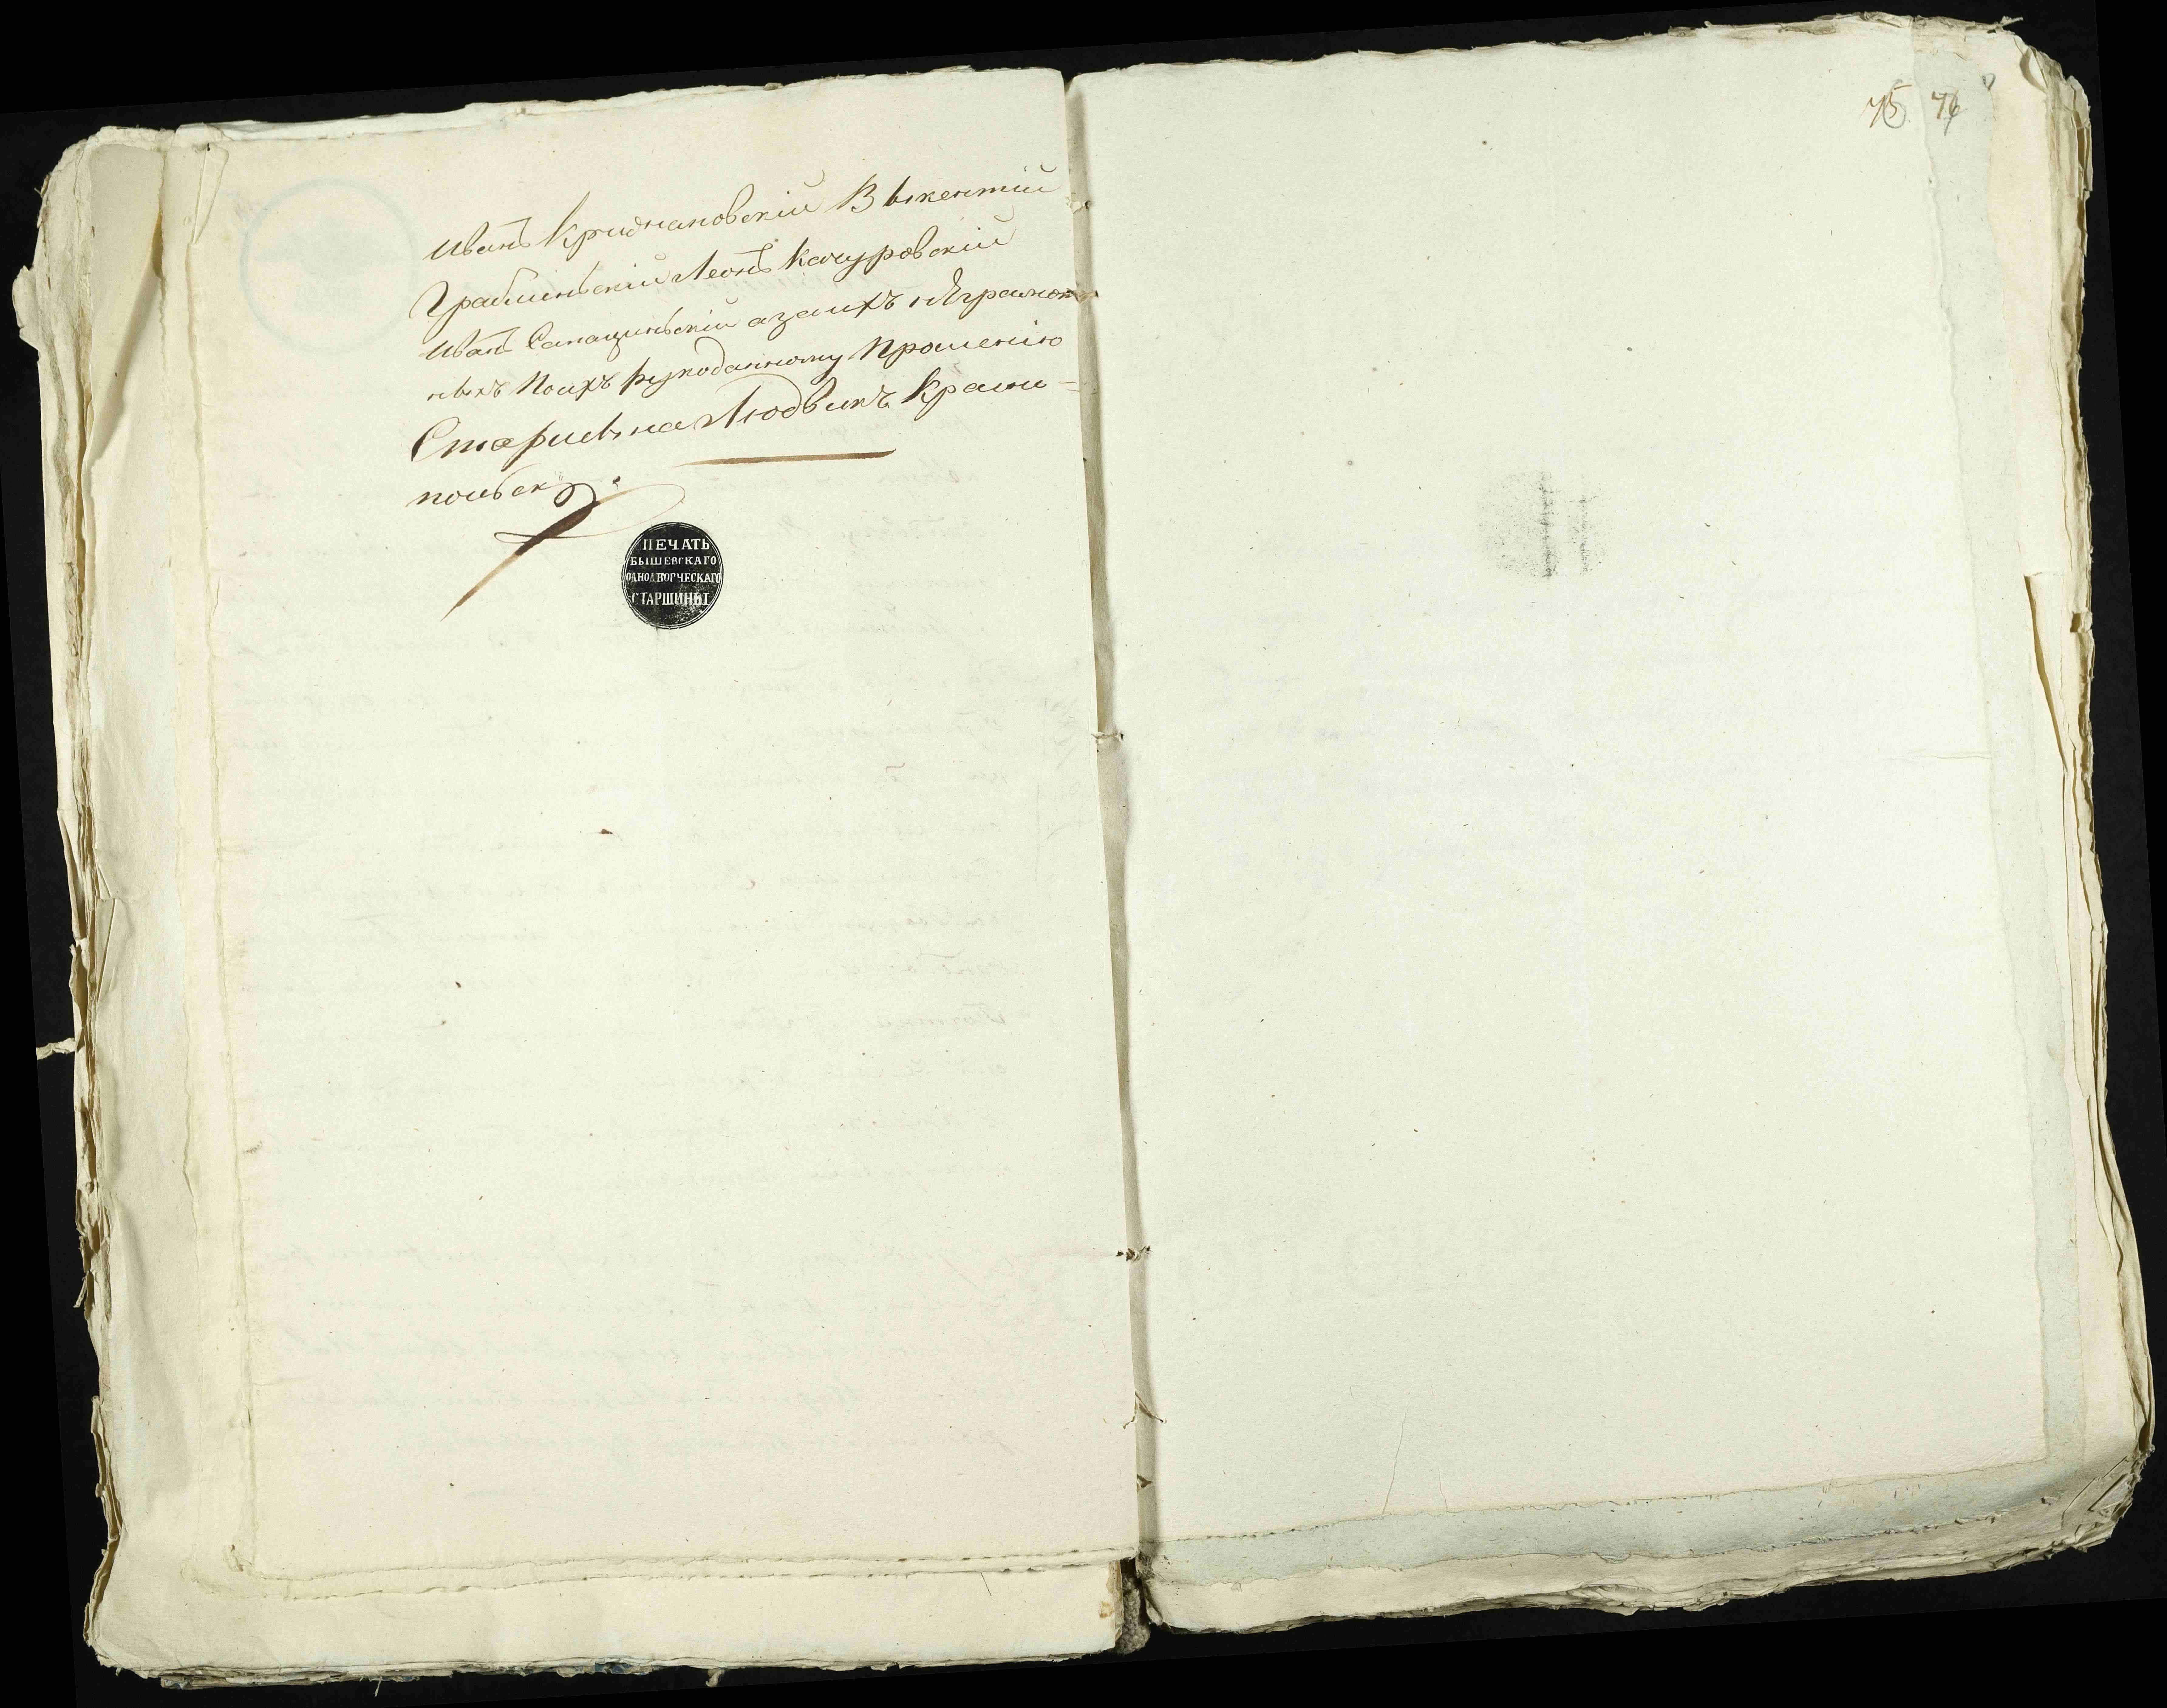 Иванъ Криднаповскій Выкентій
Грабиинскій Леонъ Качуровскій
Иванъ Сапацинскій азаихъ нѣграмот
ныхъ Поихъ рукоданному Прошенію
Старшына Людвикъ Красно=
польскій
ПЕЧАТЬ
БЫШЕВСКАГО
ОДНОДВОРЧЕСКАГО
СТАРШИНЫ
75 76